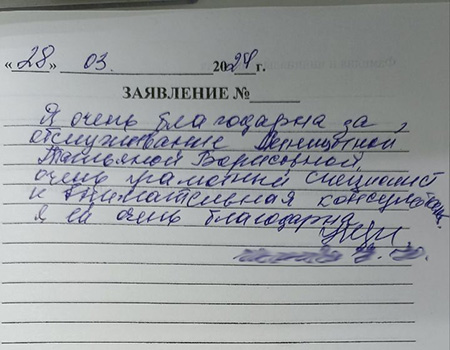 «28» 03. 2024 г.
ЗАЯВЛЕНИЕ №
Я очень благодарна за
обслуживание
Татьяной Борисовной,
очень грамотный специалист
и внимательная
я ей очень благодарна